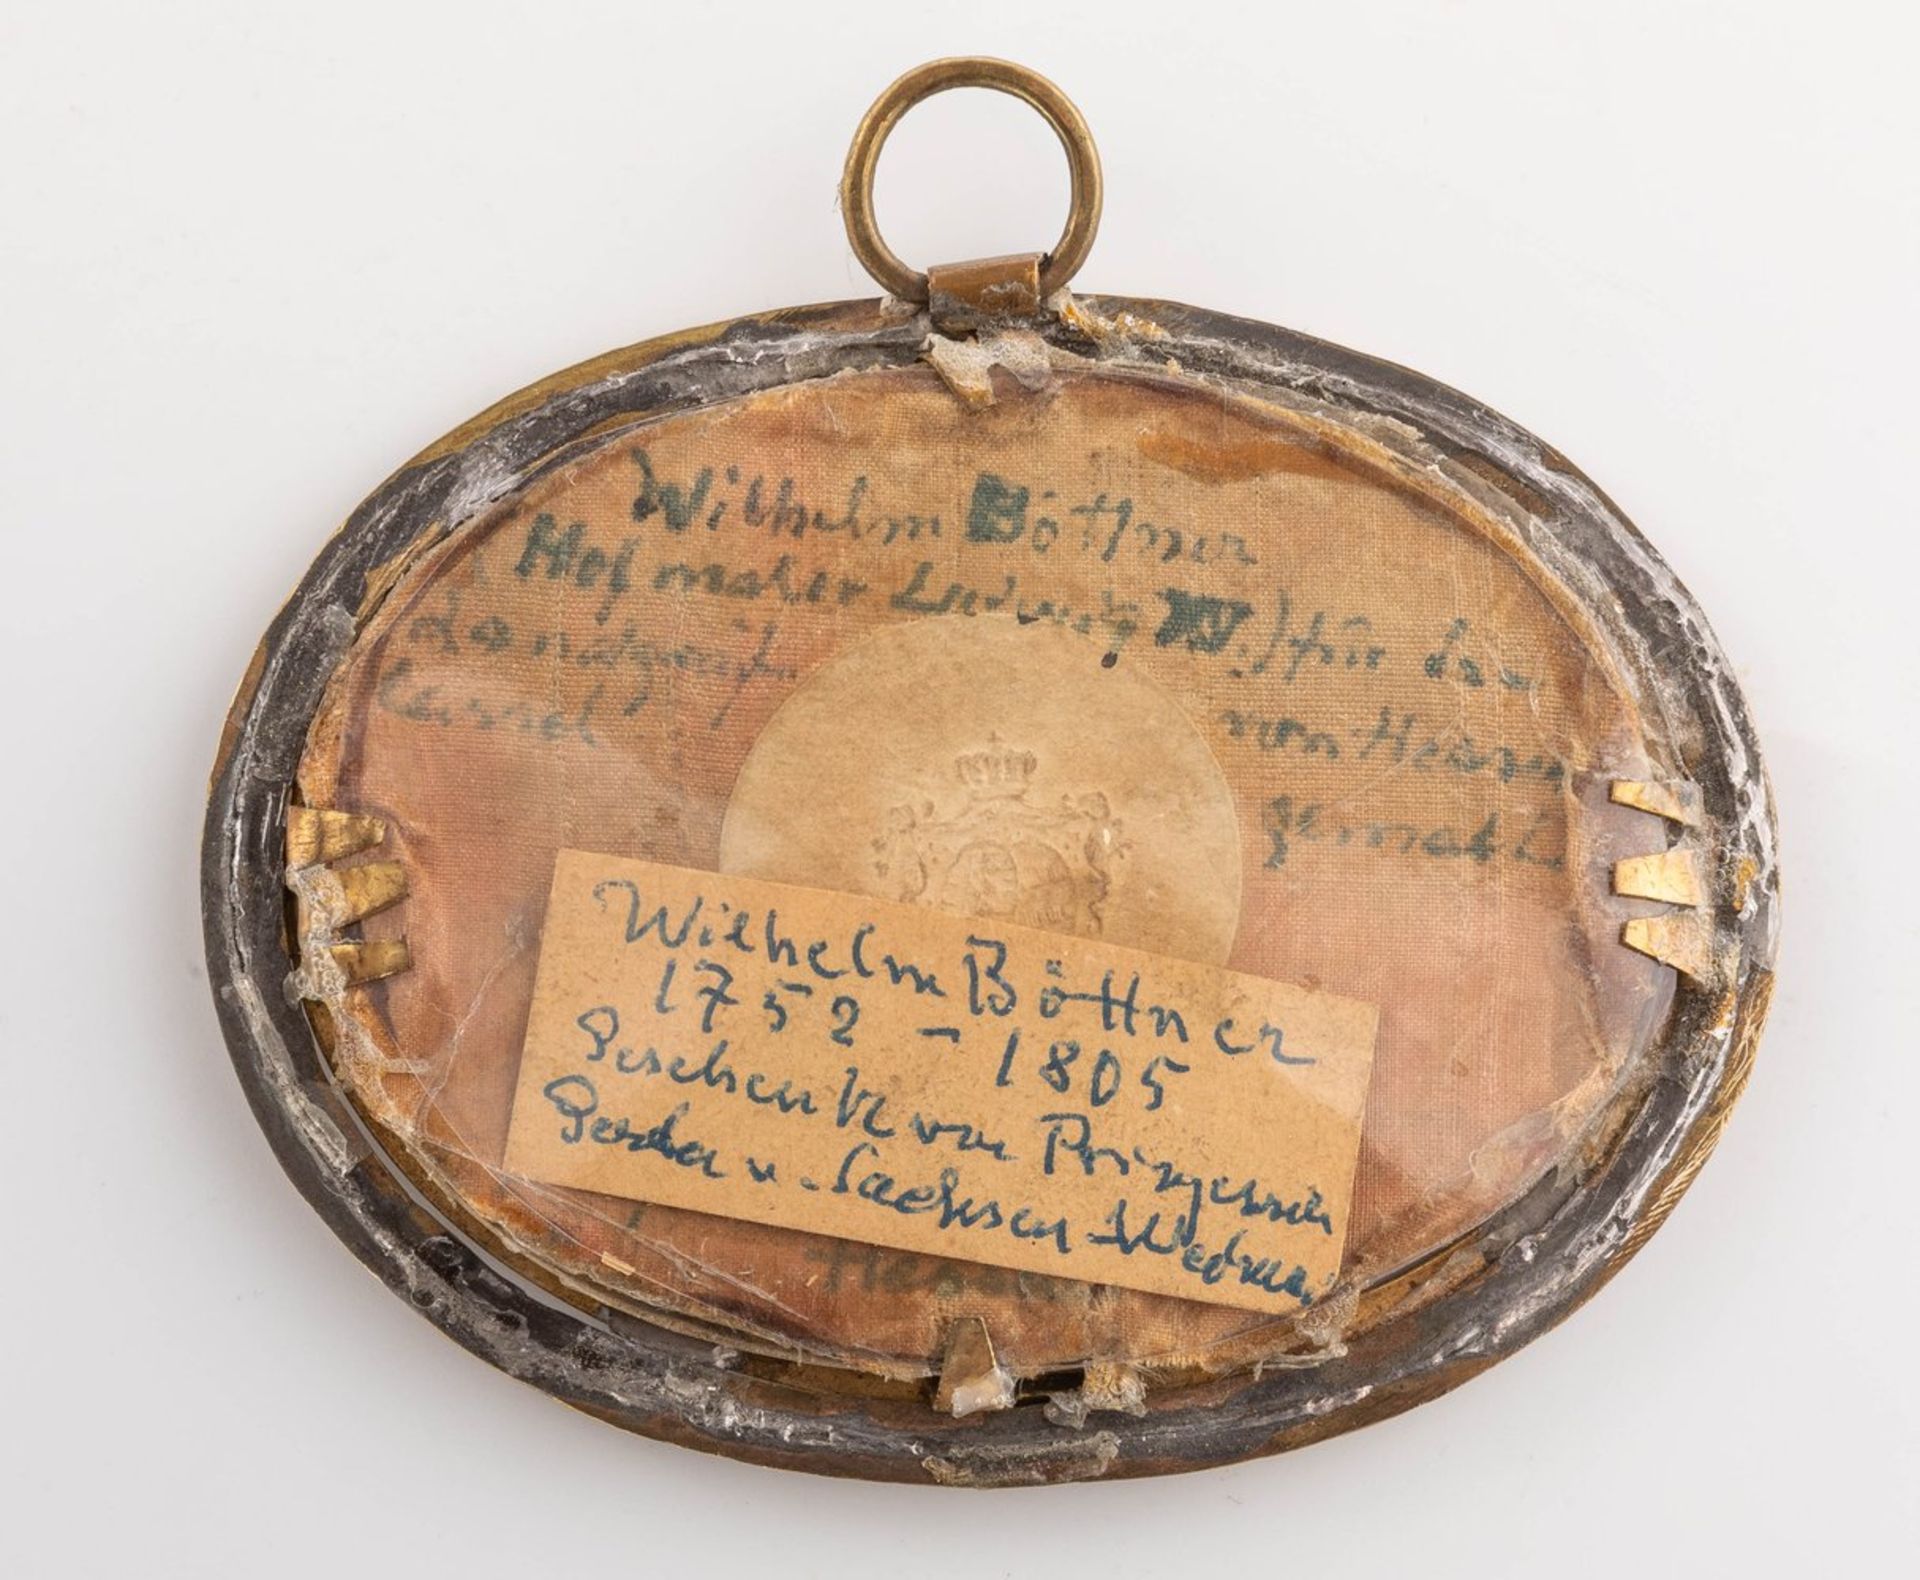 Wilhelm Böttner
Hofmaler Ludwig XV.) für den
Landgrafen von Hessen
Cassel gemalt
Wilhelm Böttner
1752 - 1805
Geschenk von Prinzessin
v. Sachsen-Weimar